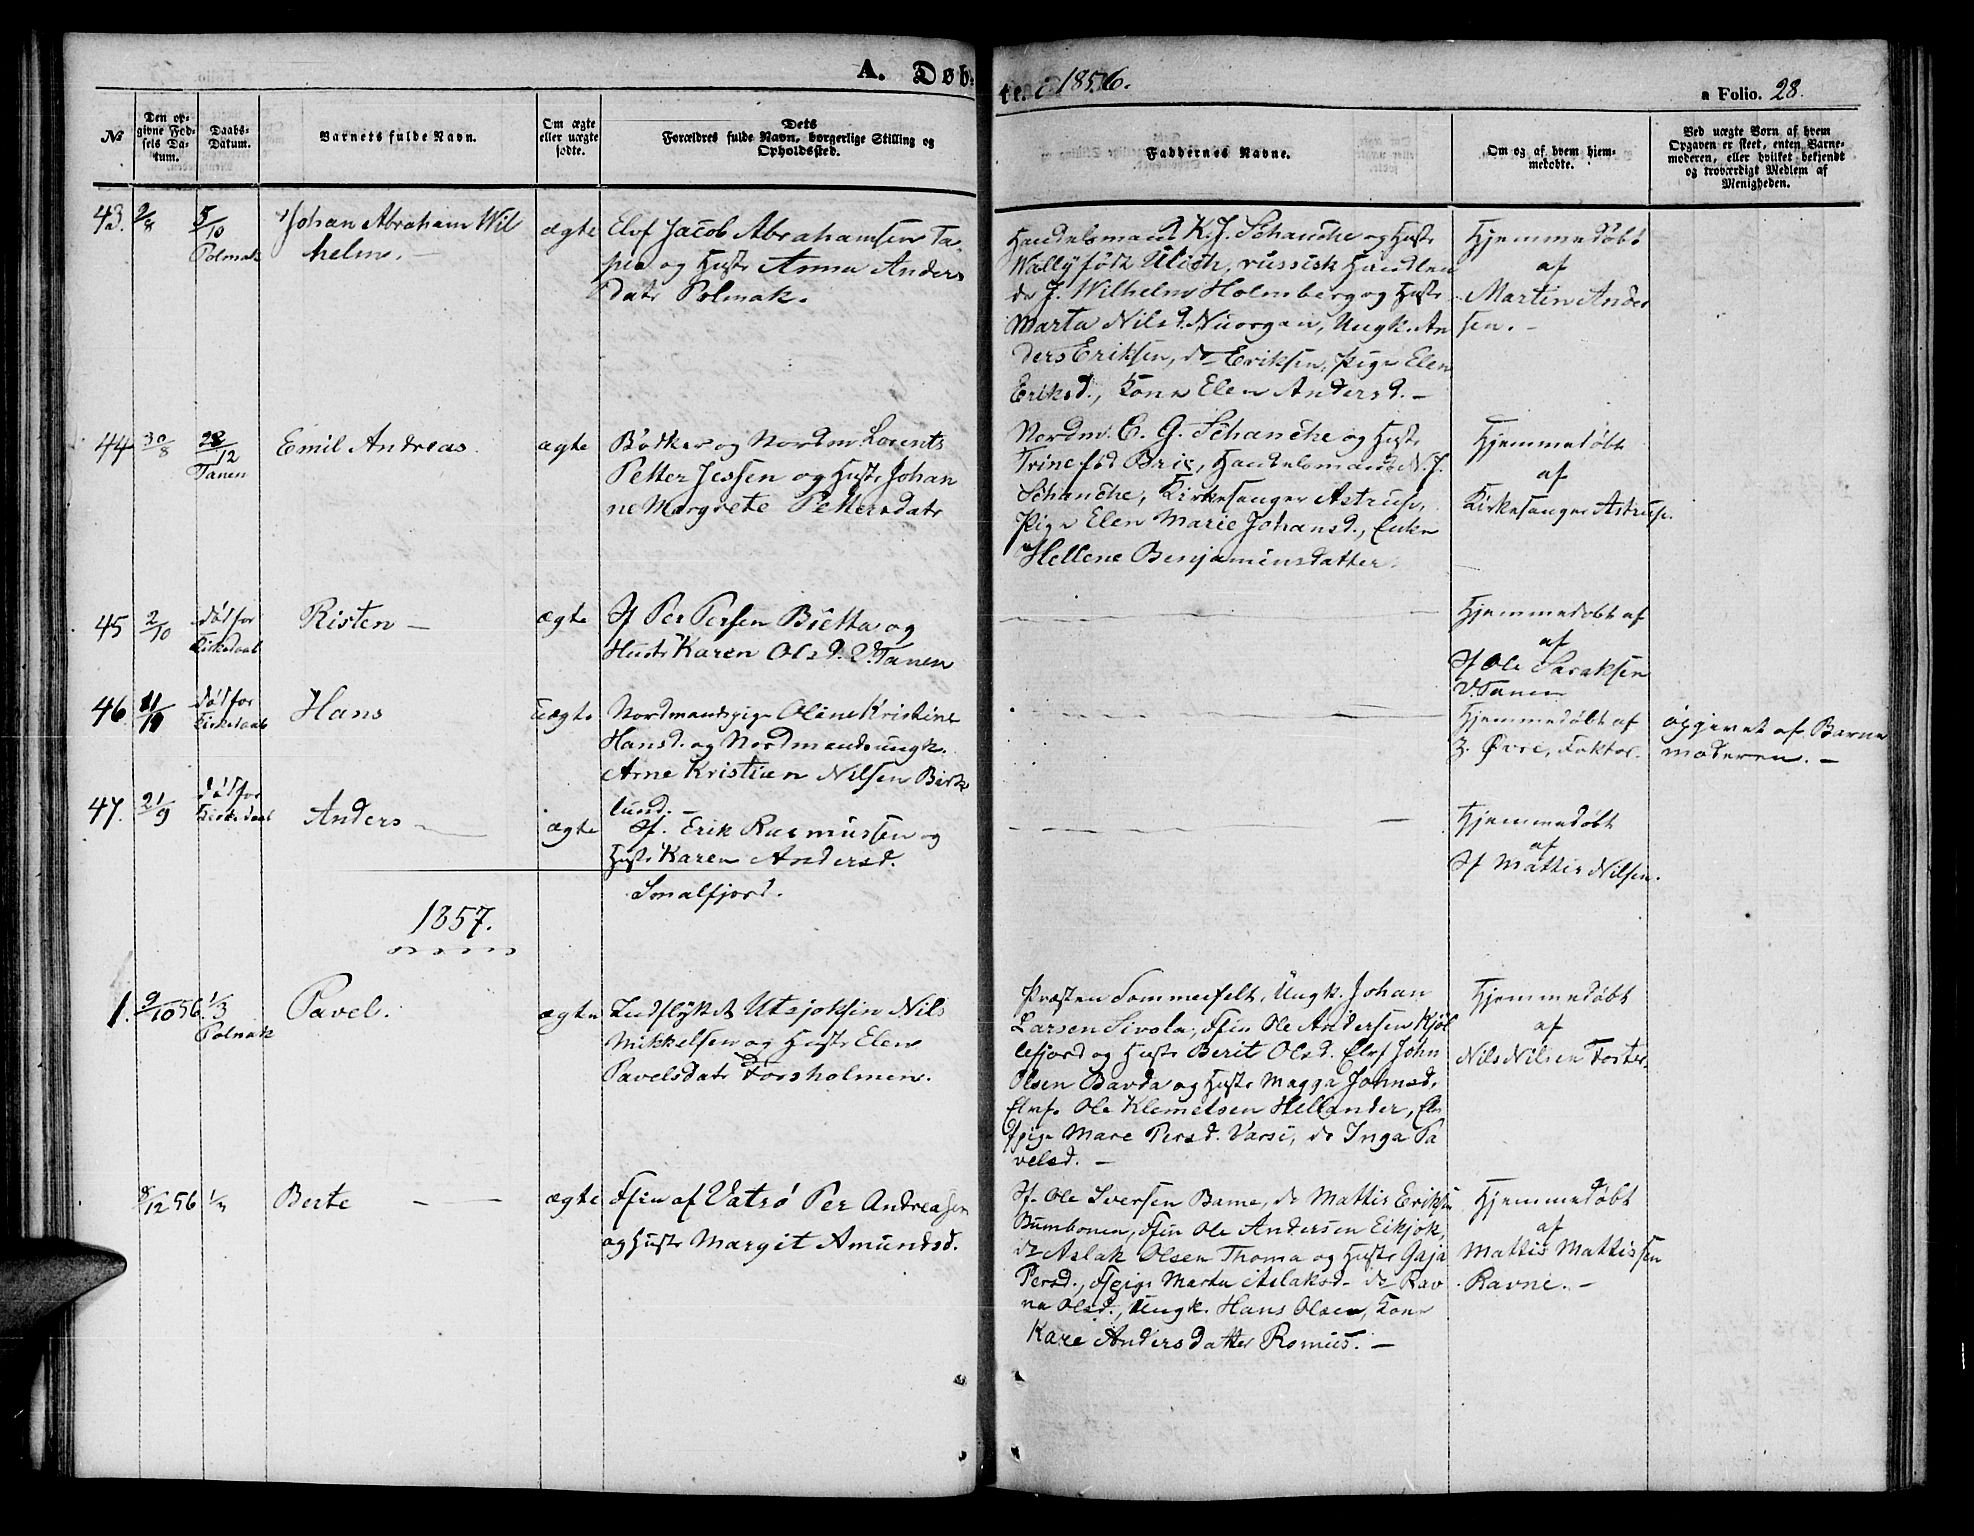 A. Døb-
te. i 1856.
a Folio. 28.
No
Den op-
givne Fød-
sels Da-
tum.
Daabs-
Datum.
Barnets fulde Navn.
Om ægte
eller uægte
fødte.
Dets
Forældres fulde Navn, borgerlige Stilling og
Opholdssted.
Faddernes Navne.
Om og af hvem hjem-
medøbte.
Ved uægte Børn af hvem
Opgaven er skeet, enten Barne-
moderen, eller hvilket bekjendt
og troværdigt Medlem af
Menigheden.
43.
5/10
Polmak
Johan Abraham Wil
helm. —
ægte
Elvf Jacob Abrahamsen Ta-
pio og Hustr Anna Anders
datr Polmak.
Handelsmand K. J. Schanche og Hustr
Wally født Ulich, russisk Handlen
de J. Wilhelm Holmberg og Hustr
Marta Nilsd. Nuorgan, Ungk. An
ders Eriksen, do Eriksen, Pige Elen
Eriksd., Kone Elen Andersd. —
Hjemmedøbt
af
Martin Ander
sen. —
44
30/8
28/12
Tanen
Emil Andreas.
ægte
Bødker og Nordm. Lorents
Petter Jessen og Hustr Johan
ne Margrete Pettersdatr
Nordm. E. G. Schanche og Hustr
Trine fød Brie, Handelsmand N. J.
Schanche, Kirkesanger Astrup,
Pige Elen Marie Johansd., Enke
Hellene Benjaminsdatter.
Hjemmedøbt
af
Kirkesanger Astrup.
45
2/10
død for
Kirkedaab
Risten —
ægte
Sf Per Persen Bietta og
Hustr Karen Olsd. V. Tanen
Hjemmedøbt af
af
Sf Ole Saraksen
V. Tanen
46.
død for
Kirkedaab
Hans
uægte
Nordmandspige Oline Kristine
Hansd. og Nordmandsungk.
Arne Kristian Nilsen Birke
lund. —
Hjemmedøbt af
Z. Øvre, Faktor.
opgivet af Barne
moderen. —
47.
21/9
død for
Kirkedaab
Anders —
ægte
Sf. Erik Rasmussen og
Hustr Karen Andersd.
Smalfjord.
Hjemmedøbt
af
Sf Mattis Nilsen.
1857.
1.
9/10 56.
1/3
Polmak
Pavel.
ægte
Indflyttet Utsjoksfin Nils
Mikkelsen og Hustr Elen
Pavelsdatr Forsholmen.
Præsten Sommerfelt, Ungk. Johan
Larsen Sivola, Ffin Ole Andersen Kjøl
lefjord og Hustr Berit Olsd. Elvf John
Olsen Bavda og Hustr Magga Johnsd.
Elvf. Ole Klemetsen Hellander, Elv
fpige Mare Persd. Varsi, do Inga Pa
velsd. —
Hjemmedøbt
af
Nils Nilsen Foster.
8/12 56
Berte —
ægte
Ffin af Vatsø Per Andreasen
og Hustr Margit Amundsd.
Sf. Ole Iversen Bame, do Mattis Eriksen
Bumbonen, Ffin Ole Andersen Eikjok,
do Aslak Olsen Thoma og Hustr Gaja
Persd., Ffpige Marta Aslaksd. do Rav
na Olsd., Ungk. Hans Olsen, Kone
Kare Andersdatter Romus. —
Hjemmedøbt
af
Mattis Mattissen
Ravne. —